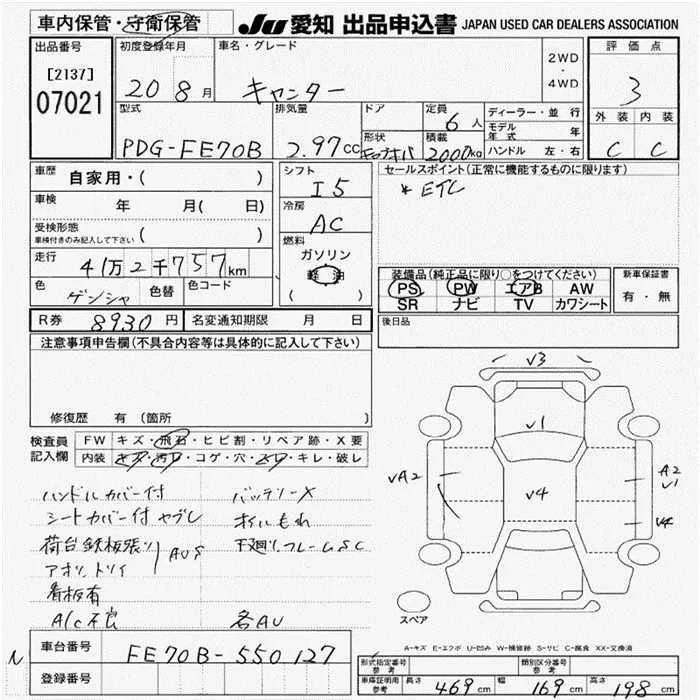 車内保管・守衛保管
JU 愛知 出品申込書 JAPAN USED CAR DEALERS ASSOCIATION
出品番号
[2137]
07021
初度登録年月
20 8月
車名・グレード
キャンター
2WD
・
4WD
評価点
3
外装 内装
C C
型式
PDG-FE70B
排気量
2.97cc
ドア
形状
定員
6人
積載
2000kg
ディーラー・並行
モデル年式 年
ハンドル 左・右
車歴
自家用・( )
車検 年 月( 日)
受検形態
車検付きのみ記入して下さい ( )
走行 41万2千757km
色 ゲンシャ 色替 色コード
シフト
I5
冷房
AC
燃料
ガソリン
( )
セールスポイント(正常に機能するものに限ります)
* ETC
装備品(純正品に限り○をつけてください)
PS PW エアB AW
SR ナビ TV カワシート
新車保証書
有・無
R券 8930円 名変通知期限 月 日
後日品
注意事項申告欄(不具合内容等は具体的に記入して下さい)
修復歴 有(箇所 )
検査員記入欄
FW キズ・飛石・ヒビ割・リペア跡・X要
内装 キズ・汚れ・コゲ・穴・スレ・キレ・破レ
ハンドルカバー付 バッテリーX
シートカバー付 ヤブレ オイルもれ
荷台鉄板張り 下廻りフレームSC
アオリ、トリイ AUS
看板有
A/C不良 各AU
V3
V1
VA2
V4
A2
V1
V4
スペア
A-キズ E-エクボ U-凹み W-補修跡 S-サビ C-腐食 XX-交換済
N
車台番号 FE70B-550127
登録番号
形式指定番号 参考
類別区分番号 参考
車庫証明用 参考
長さ 469cm 幅 169cm 高さ 198cm